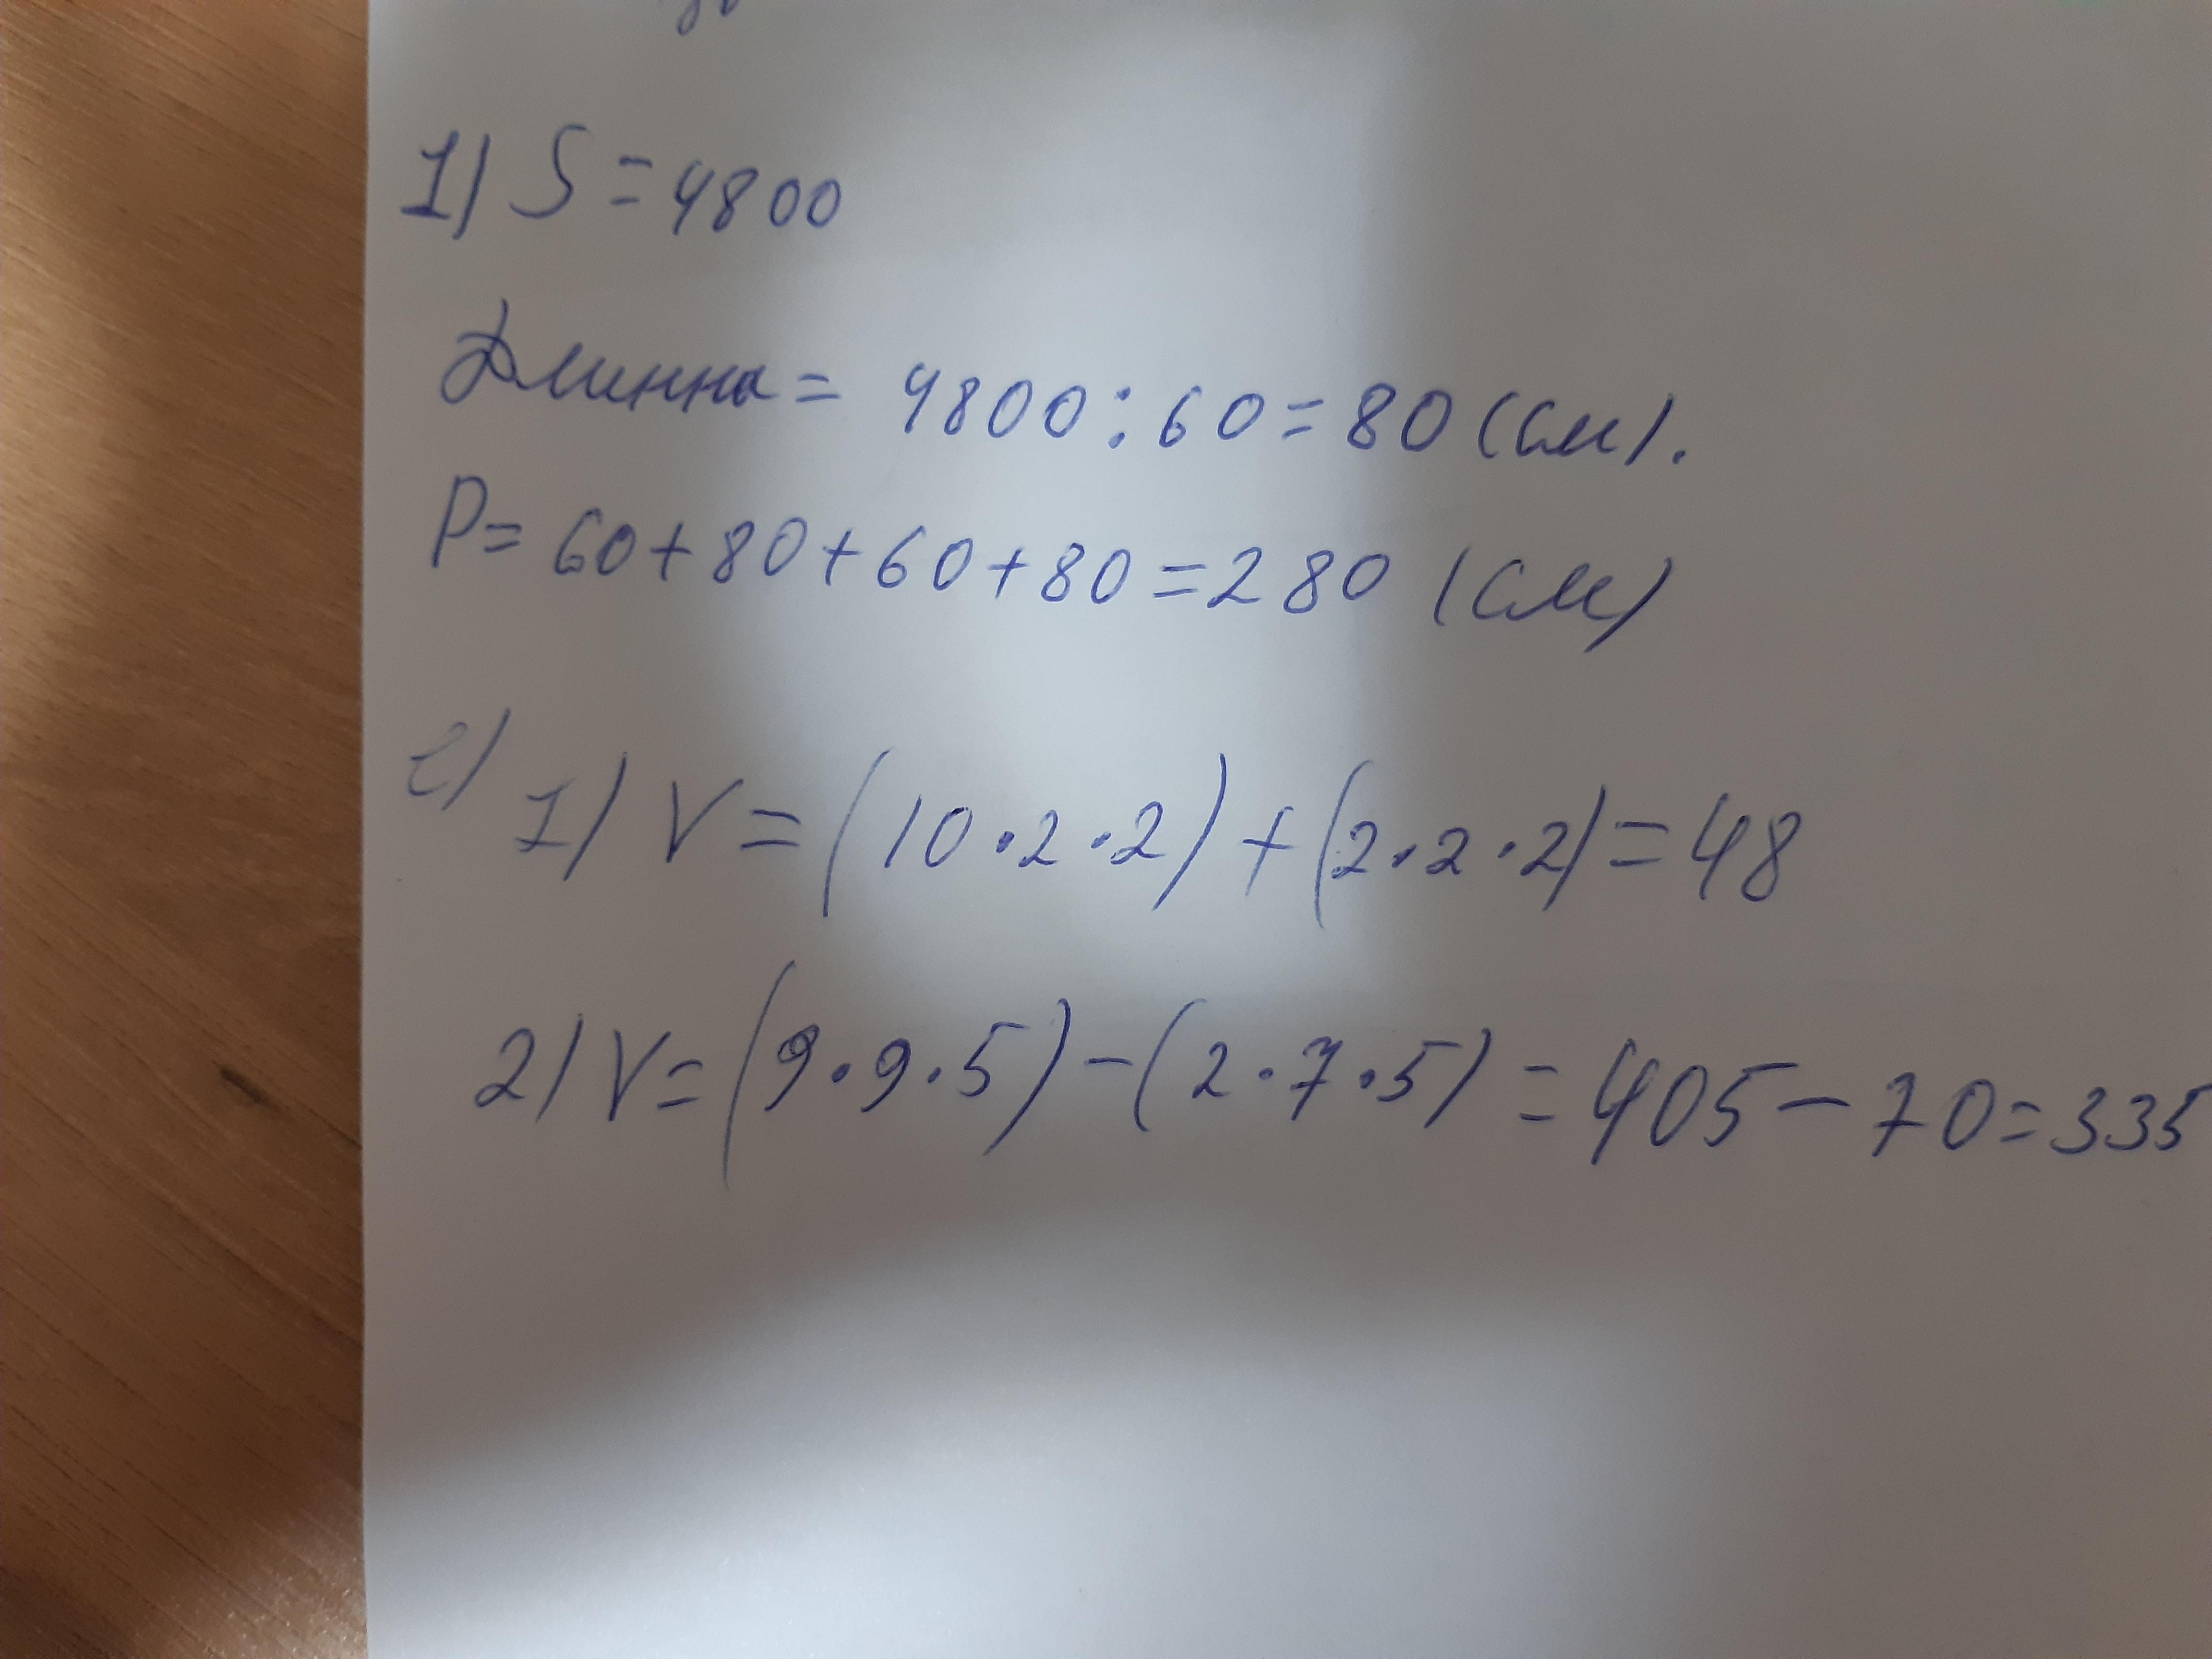 1) S = 4800
Длинна = 4800 : 60 = 80 (см).
P = 60 + 80 + 60 + 80 = 280 (см)
2) 1) V = (10 · 2 · 2) + (2 · 2 · 2) = 48
2) V = (9 · 9 · 5) - (2 · 7 · 5) = 405 - 70 = 335